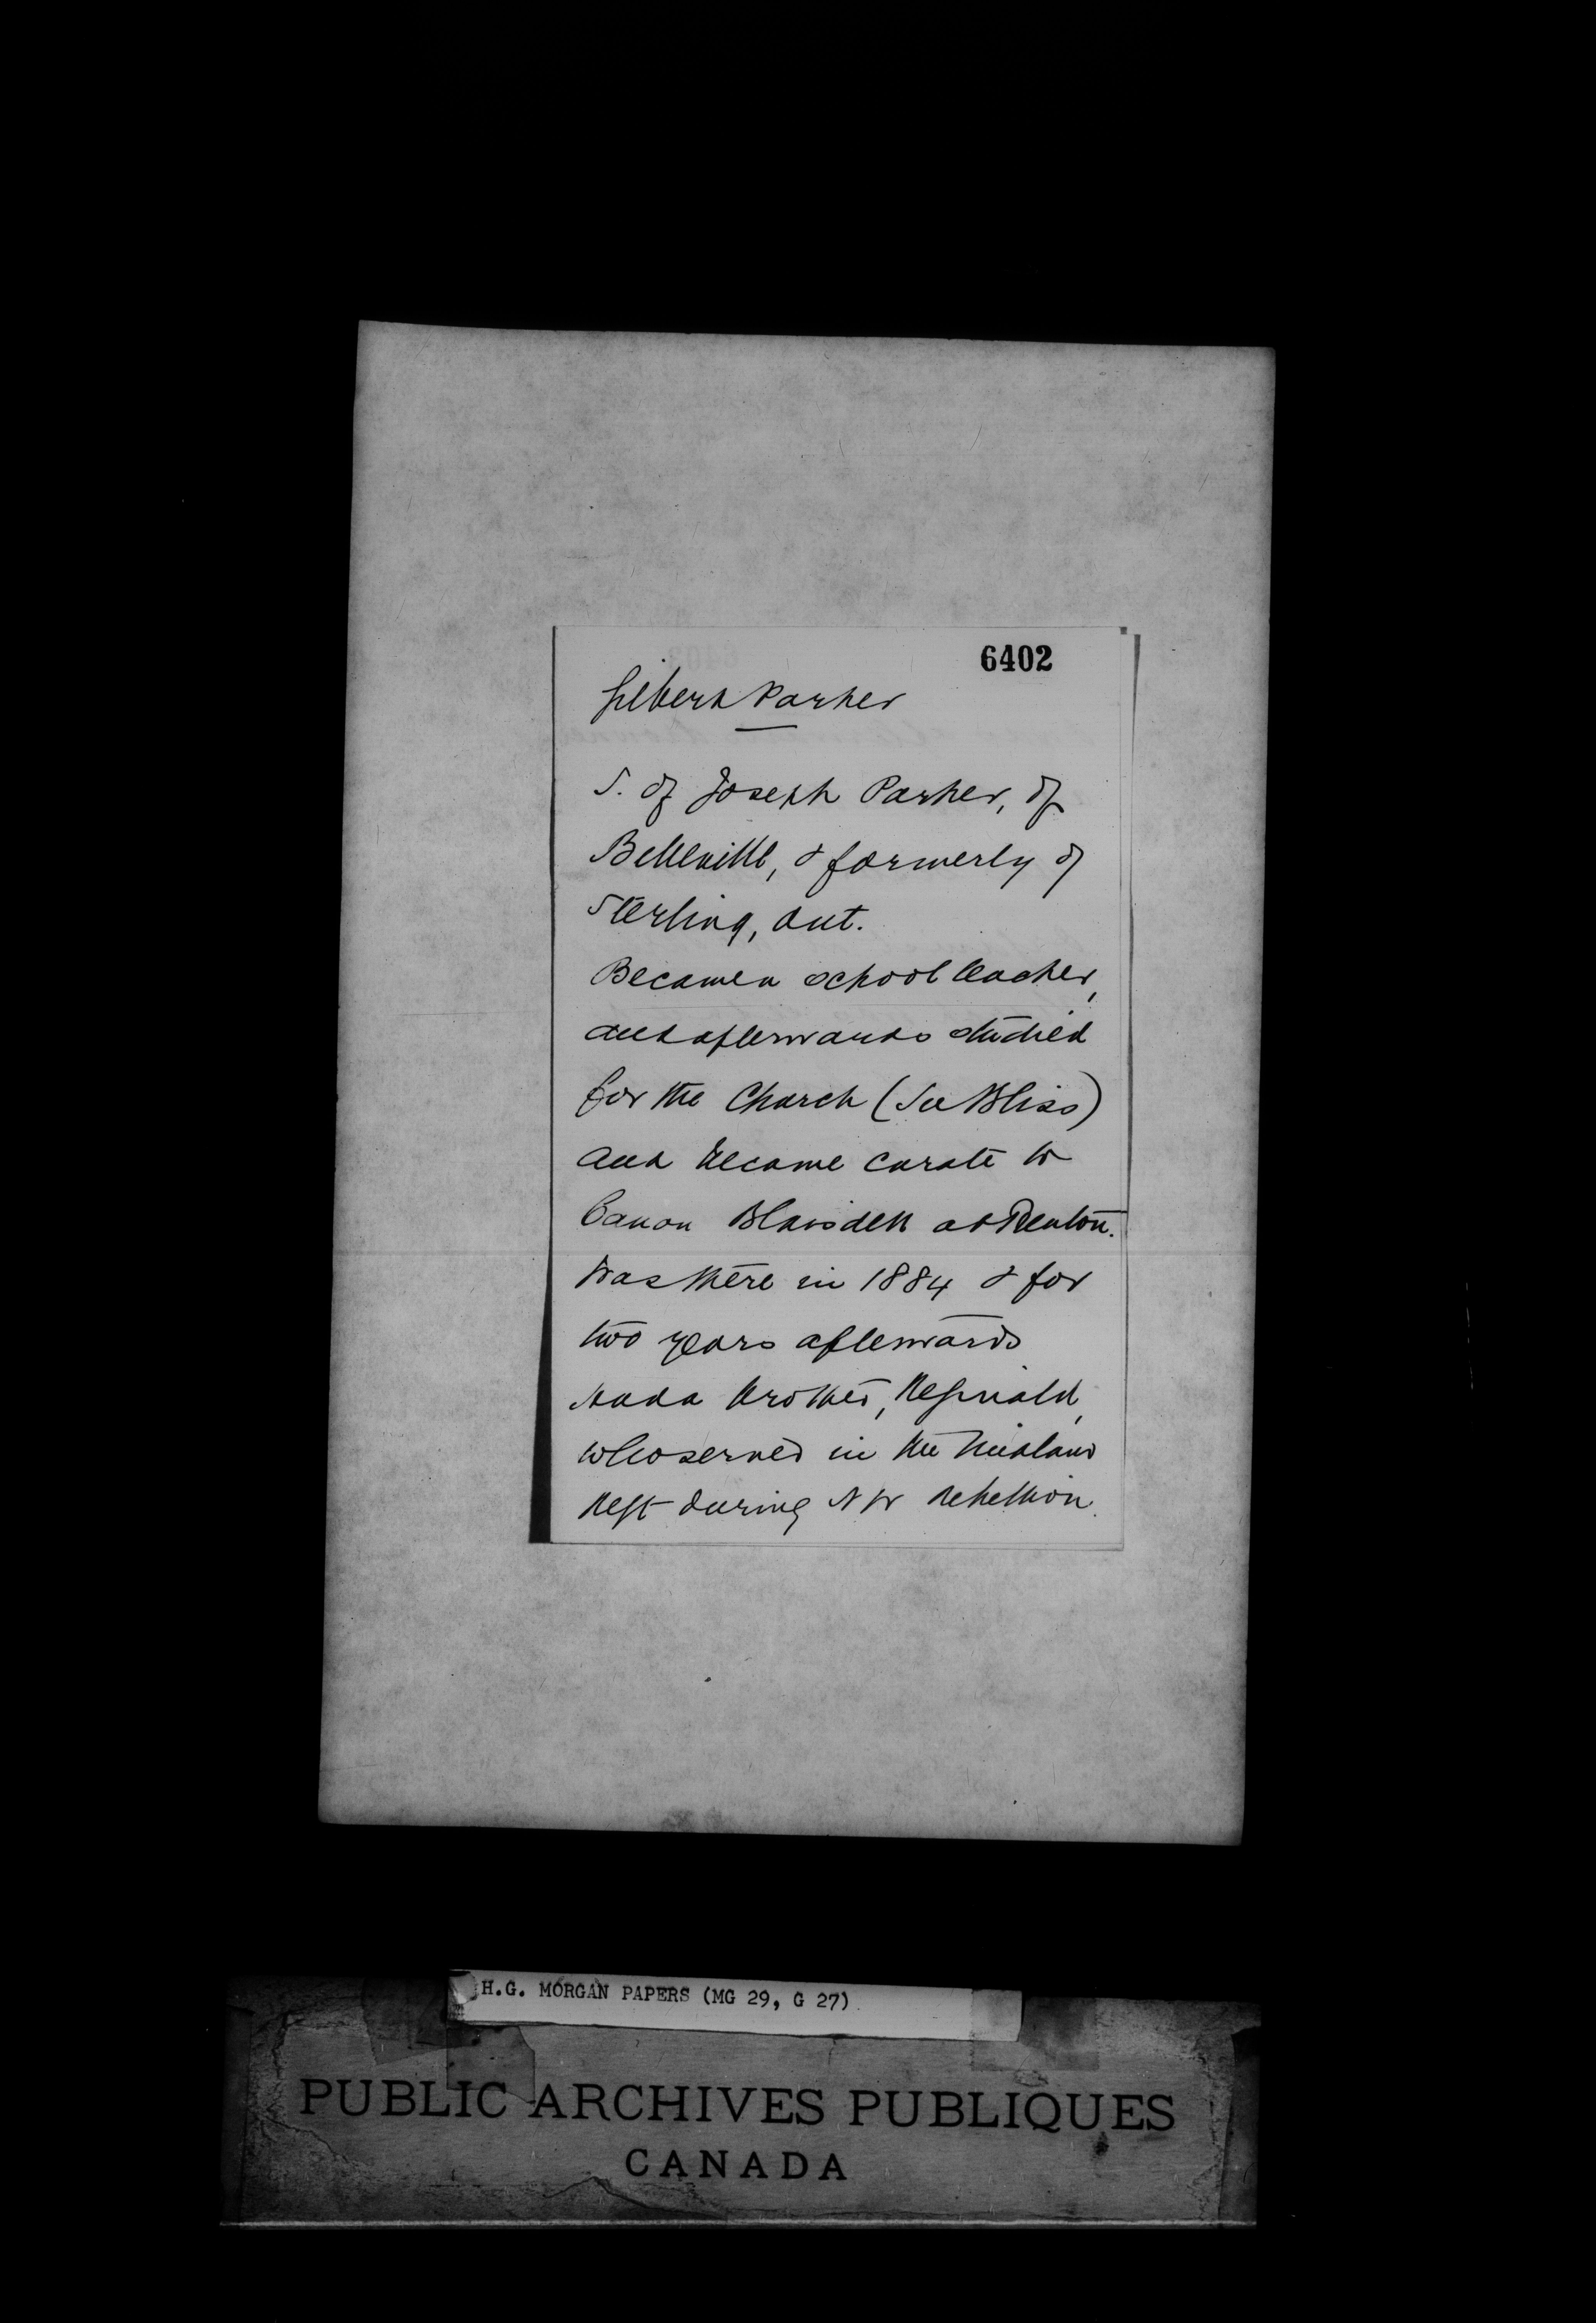 6402
Gilbert Parker
S. of Joseph Parker, of
Belleville, & formerly of
Sterling, Ont.
Became a school teacher,
and afterwards studied
for the Church (See Bliss)
and became curate to
Canon Blaisdell at Trenton.
Was there in 1884 & for
two years afterwards
Had a brother, Reginald,
who served in the Midland
Regt during N W Rebellion.
H.G. MORGAN PAPERS (MG 29, G 27)
PUBLIC ARCHIVES PUBLIQUES
CANADA